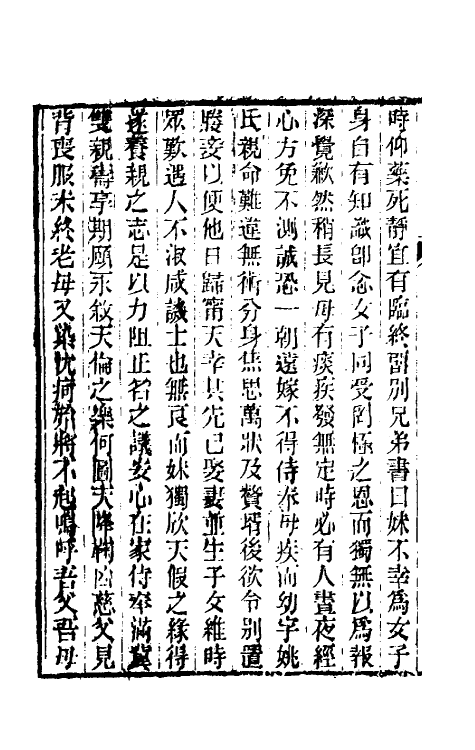 時仰藥死靜宜有臨終留別兄弟書曰妹不幸爲女子
身自有知識卽念女子同受罔極之恩而獨無以爲報
深覺歉然稍長見母有痰疾發無定時必有人晝夜經
心方免不測誠恐一朝遠嫁不得侍奉母疾而幼字姚
氏親命難違無術分身焦思萬狀及贅壻後欲令別置
媵妾以便他日歸甯天幸其先已娶妻並生子女維時
眾歎遇人不淑咸譏士也無良而妹獨欣天假之緣得
遂養親之志是以力阻正名之議安心在家侍奉滿冀
雙親壽享期頤永敘天倫之樂何圖天降鞠凶慈父見
背喪服未終老母又染沈疴勢將不起嗚呼吾父吾母